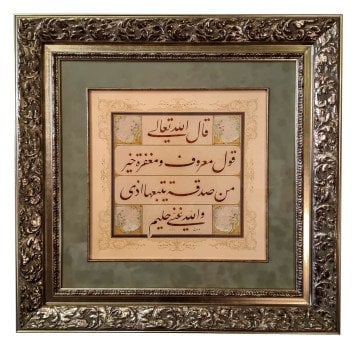 قال الله تعالى
قول معروف ومغفرة خير
من صدقة يتبعها اذى
والله غني حليم